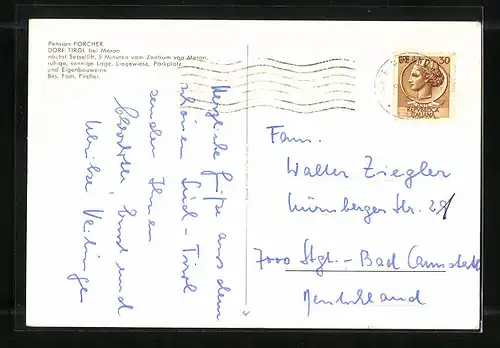 Pension FORCHER
DORF TIROL bei Meran
nächst Sessellift, 5 Minuten vom Zentrum von Meran,
ruhige, sonnige Lage, Liegewiese, Parkplatz
und Eigenbauweine
Bes. Fam. Pircher.
Herzliche Grüße aus dem
schönen Süd-Tirol
senden Ihnen
und
Ulrike
30
REPUBBLICA
ITALIANA
Fam.
Walter Ziegler
Nürnberger Str.
7000 Stgt.-Bad Cannstatt
Deutschland